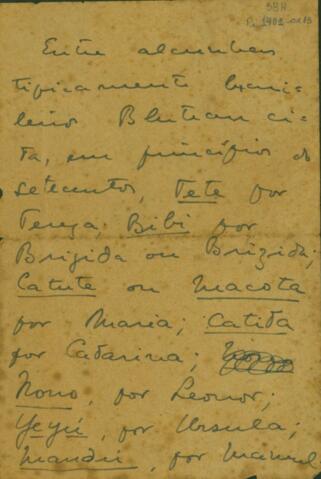 SBH
Entre alcunhas
tipicamente brasi-
leiras Bluteau ci-
ta, em princípios do
setecentos, Tete por
Tereza, Bibi por
Brigida ou Brizida;
Catute ou Macota
por Maria; Catita
por Catarina;
Nono, por Leonor;
Yeyú, por Ursula;
Mandú, por Manuel